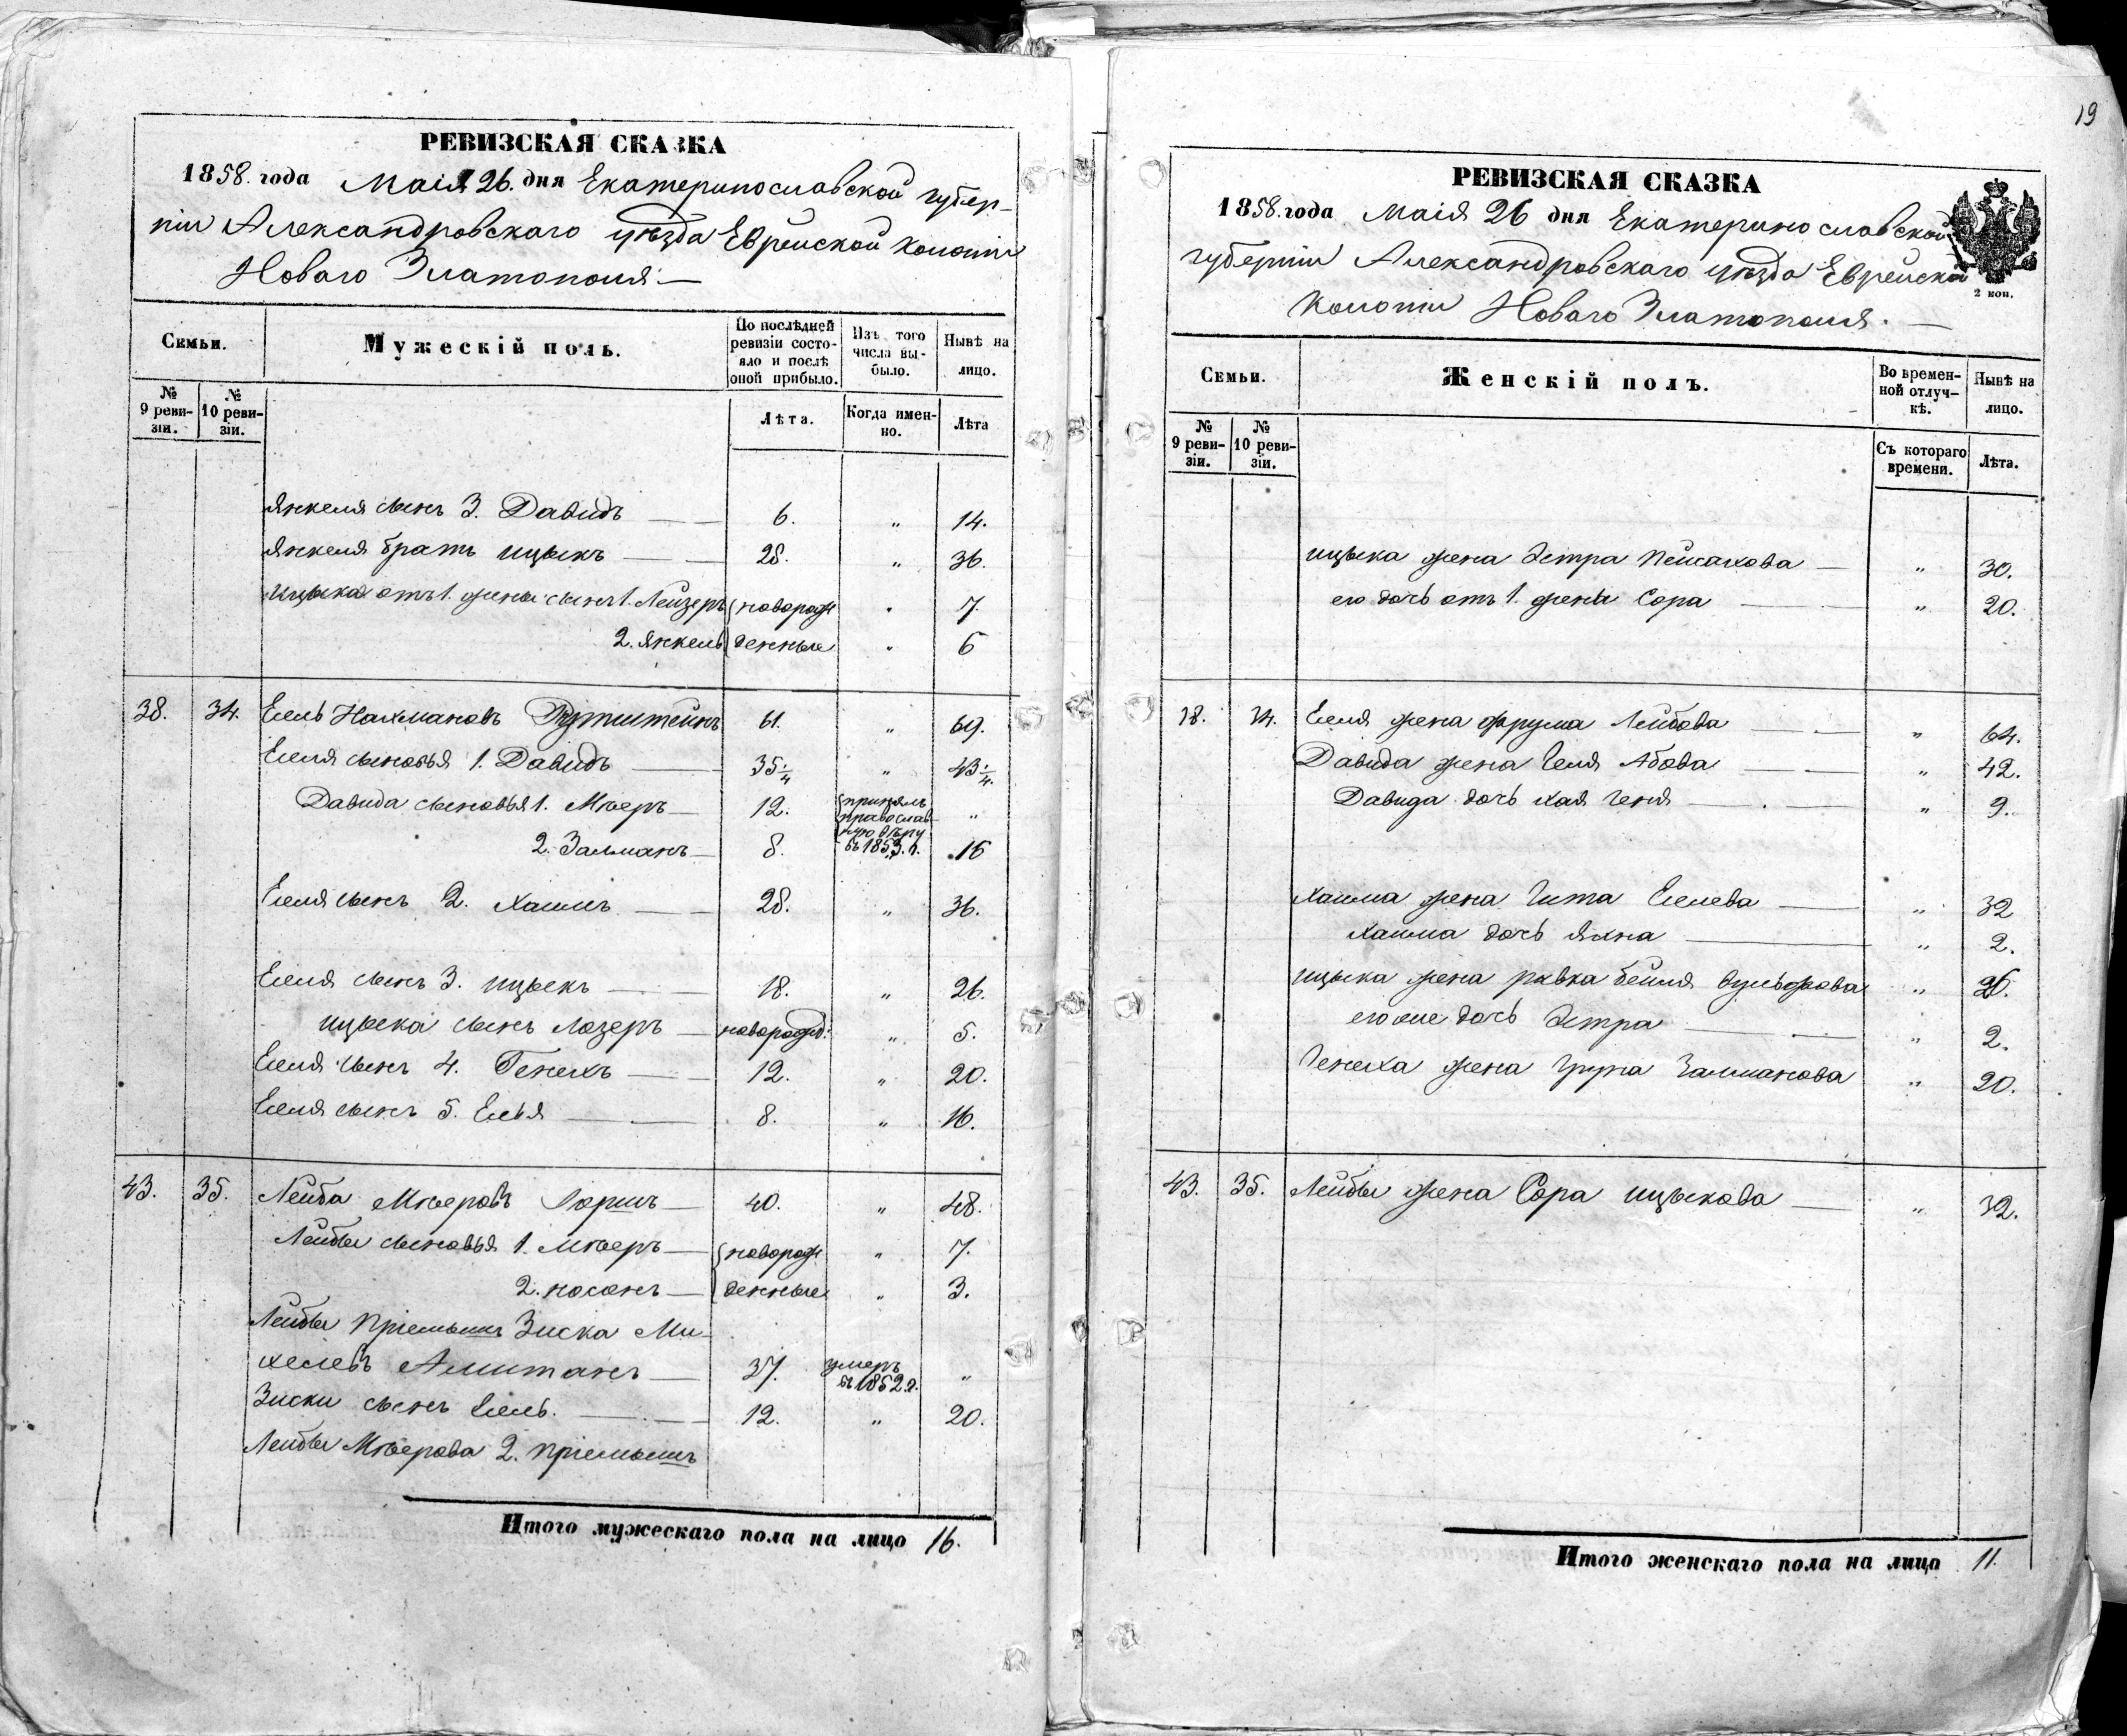 РЕВИЗСКАЯ СКАЗКА
1858. года Маія 26. дня Екатеринославской губер-
ніи Александровскаго уѣзда Еврейской колоніи
Новаго Златополя.—
Семьи.
Мужескій полъ.
По послѣдней ревизіи состояло и послѣ оной прибыло.
Изъ того числа выбыло.
Нынѣ на лицо.
№ 9 реви-зіи.
№ 10 реви-зіи.
Лѣта.
Когда имен-но.
Лѣта
Янкеля сынъ 3. Давидъ — 6. „ 14.
Янкеля братъ Ицыкъ — 28. „ 36.
Ицыка отъ 1. жены сынъ 1. Лейзеръ новорож „ 7
2. Янкель денные „ 6
38. 34. Елель Нахмановъ 61. „ 69.
Елеля сыновья 1. Давидъ — 35 1/4 „ 43 1/4.
Давида сыновья 1. Моверъ — 12. принялъ православ-ную вѣру въ 1853. г. „
2. Залманъ — 8. 16
Елеля сынъ 2. Хаимъ — 28. „ 36.
Елеля сынъ 3. Ицыкъ — 18. „ 26.
Ицыка сынъ Лозеръ — новорожд: „ 5.
Елеля сынъ 4. Генехъ — 12. „ 20.
Елеля сынъ 5. Елья — 8. „ 16.
43. 35. Лейба Моверовъ 40. „ 48.
Лейбы сыновья 1. Моверъ — новорож „ 7.
2. Носонъ — денные „ 3.
Лейбы пріемышъ Зиска Ми-
хелевъ Алитанъ — 37. умеръ въ 1852 г. „
Зиски сынъ Елель. — 12. „ 20.
Лейбы Моверова 2. пріемышъ
Итого мужескаго пола на лицо 16.
19
РЕВИЗСКАЯ СКАЗКА
1858. года Маія 26 дня Екатеринославской
губерніи Александровскаго уѣзда Еврейской
колоніи Новаго Златополя. —
2 коп.
Семьи.
Женскій полъ.
Во времен-ной отлуч-кѣ.
Нынѣ на лицо.
№ 9 реви-зіи.
№ 10 реви-зіи.
Съ котораго времени.
Лѣта.
Ицыка жена Эстра Пейсахова — „ 30.
его дочь отъ 1. жены Сора — „ 20.
38. 34. Елеля жена Фрума Лейбова — „ 64.
Давида жена Геля Абова — „ 42.
Давида дочь Хая Геня — „ 9.
Хаима жена Гита Елелева — „ 32
Хаима дочь Яхна — „ 2.
Ицыка жена Ривка Бейля Вульфова „ 26.
его же дочь Эстра — „ 2.
Генеха жена Груна Залманова „ 20.
43. 35. Лейбы жена Сора Ицыкова — „ 32.
Итого женскаго пола на лицо 11.